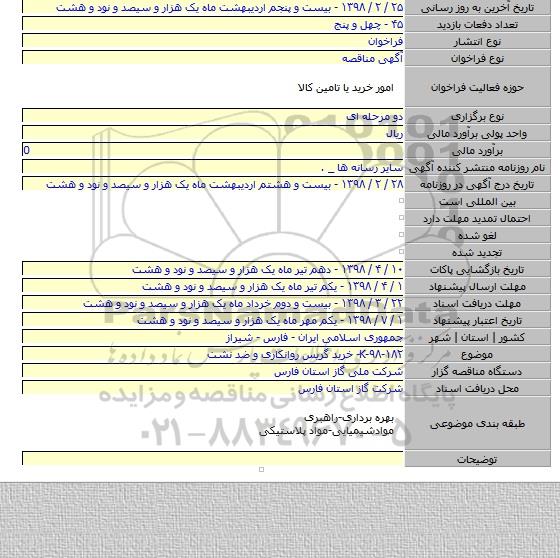 تاریخ آخرین به روز رسانی ۲۵ / ۲ / ۱۳۹۸ - بیست و پنجم اردیبهشت ماه یک هزار و سیصد و نود و هشت
تعداد دفعات بازدید ۴۵ - چهل و پنج
نوع انتشار فراخوان
نوع فراخوان آگهی مناقصه
حوزه فعالیت فراخوان امور خرید یا تامین کالا
نوع برگزاری دو مرحله ای
واحد پولی برآورد مالی ریال
برآورد مالی 0
نام روزنامه منتشر کننده آگهی سایر رسانه ها _ .
تاریخ درج آگهی در روزنامه ۲۸ / ۲ / ۱۳۹۸ - بیست و هشتم اردیبهشت ماه یک هزار و سیصد و نود و هشت
بین المللی است
احتمال تمدید مهلت دارد
لغو شده
تجدید شده
تاریخ بازگشایی پاکات ۱۰ / ۴ / ۱۳۹۸ - دهم تیر ماه یک هزار و سیصد و نود و هشت
مهلت ارسال پیشنهاد ۱ / ۴ / ۱۳۹۸ - یکم تیر ماه یک هزار و سیصد و نود و هشت
مهلت دریافت اسناد ۲۲ / ۳ / ۱۳۹۸ - بیست و دوم خرداد ماه یک هزار و سیصد و نود و هشت
تاریخ اعتبار پیشنهاد ۱ / ۷ / ۱۳۹۸ - یکم مهر ماه یک هزار و سیصد و نود و هشت
کشور | استان | شهر جمهوری اسلامی ایران - فارس - شیراز
موضوع K-۹۸-۱۸۲- خرید گریس روانکاری و ضد نشت
دستگاه مناقصه گزار شرکت ملی گاز استان فارس
محل دریافت اسناد شرکت گاز استان فارس
طبقه بندی موضوعی بهره برداری-راهبری
موادشیمیایی-مواد پلاستیکی
توضیحات
پایگاه اطلاع رسانی مناقصه و مزایده
۰۲۱-۸۸۳۴۹۶۷۰-۵